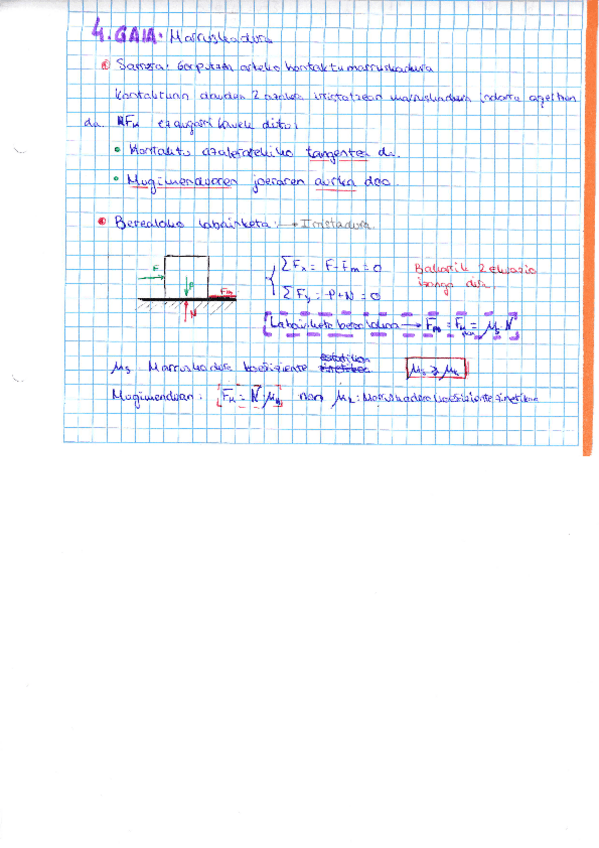 4. GAIA: Marruskadura
Sarrera: Gorputzen arteko kontaktu marruskadura
Kontaktuan dauden 2 azalera irristatzean marruskadura indarra agertzen
da. FM ezaugarri hauek ditu:
Kontaktu azalerarekiko tangentea da.
Mugimenduaren joeraren aurka dao.
Berealako labainketa: → Irristadura.
F P Fm N
ΣFx = F - Fm = 0
Bakarrik 2 ekuazio
ΣFy = -P + N = 0
izango dira.
Labainketa berealakoa → Fm = = μs · N
μs Marruskadura koefiziente estatikoa
μs ≥ μk
Mugimenduan: FM = N · μk non μk: Marruskadura koefiziente zinetikoa